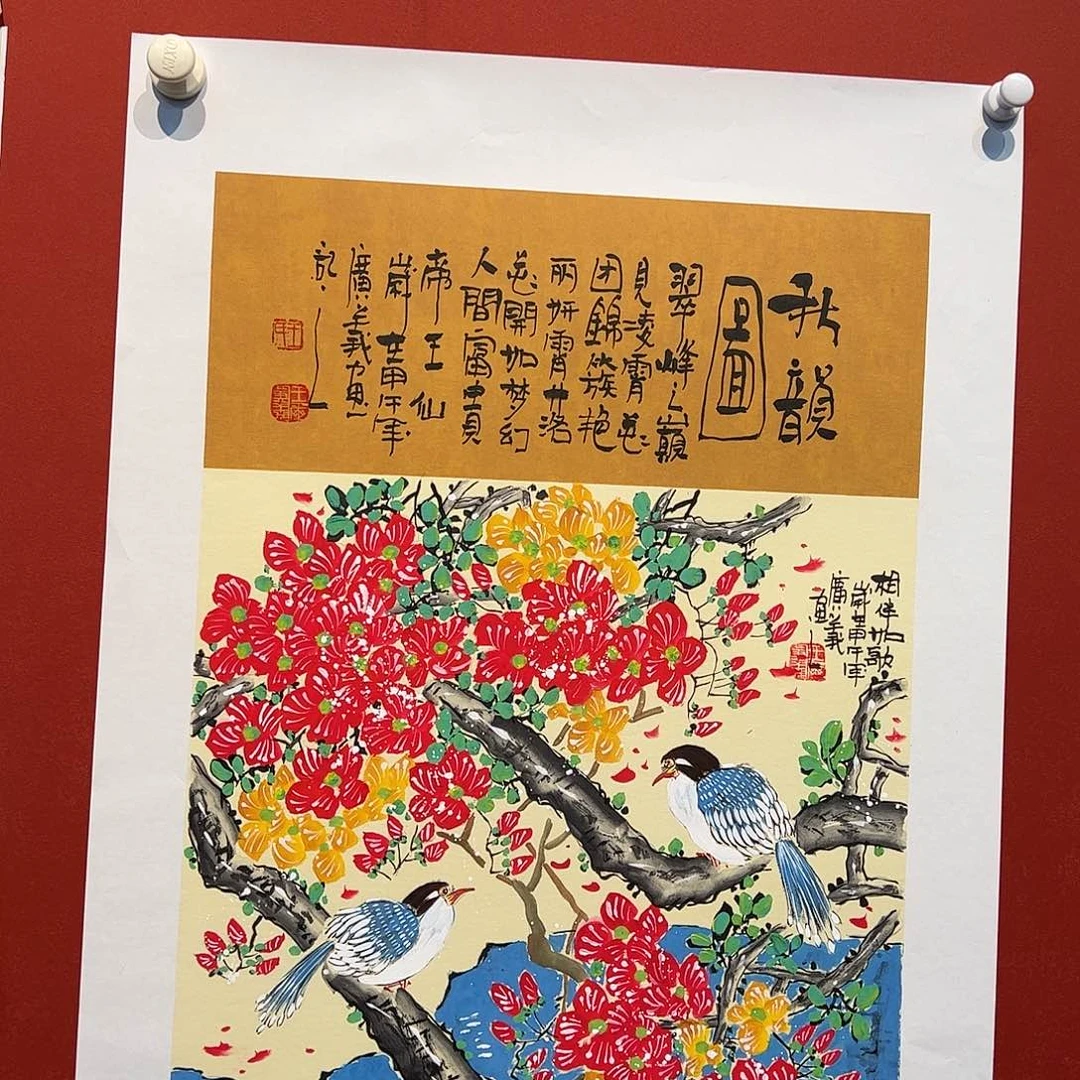 秋韻
圖
翠峰之巔
見凌霄花
团錦簇艳
丽妍霄
花開如梦幻
人間富貴
帝王仙
歲甲午年
廣義画
記
相伴如歌
歲甲午年
廣義
画